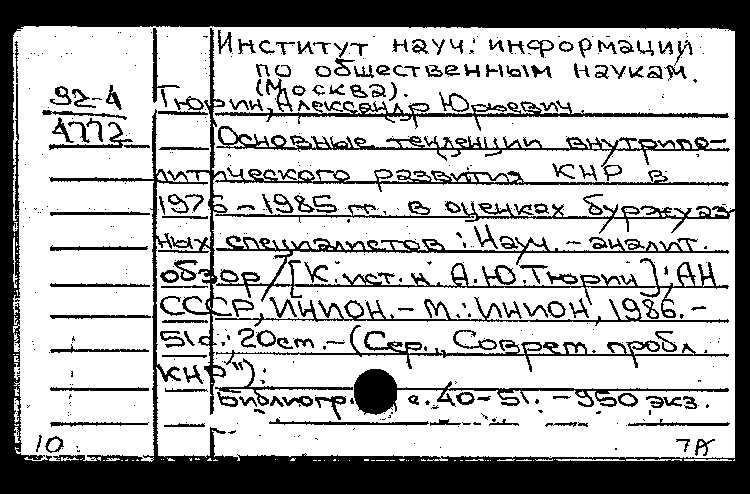 Институт науч. информации
по общественным наукам.
(Москва).
92-4
4772
Тюрин, Александр Юрьевич.
Основные тенденции внутрипо-
литического развития КНР в
1976-1985 гг. в оценках буржуаз-
ных специалистов : Науч.-аналит.
обзор / [К. ист. н. А.Ю. Тюрин]; АН
СССР, ИНИОН. - М.: ИНИОН, 1986. -
51 с.; 20 см. - (Сер. "Соврем. пробл.
КНР").
Библиогр. с. 40-51. - 950 экз.
10